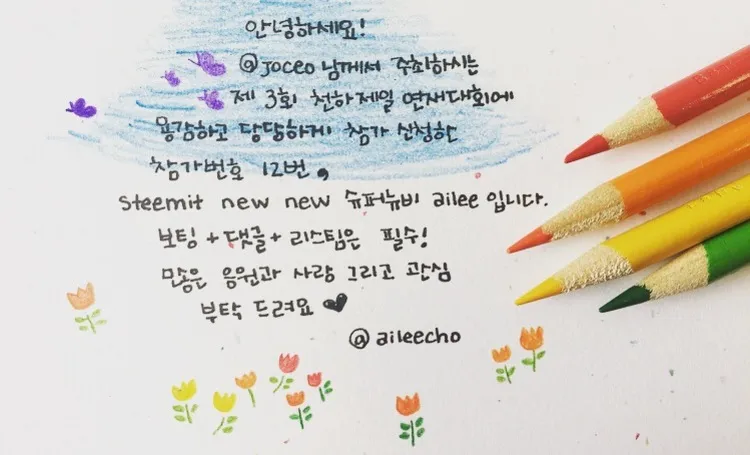 안녕하세요!
@joceo님께서 주최하시는
제 3회 천하제일 연재대회에
용감하고 당당하게 참가 신청한
참가번호 12번,
steemit new new 슈퍼뉴비 ailee 입니다.
보팅 + 댓글 + 리스팀은 필수!
많은 응원과 사랑 그리고 관심
부탁 드려요 ♥
@aileecho